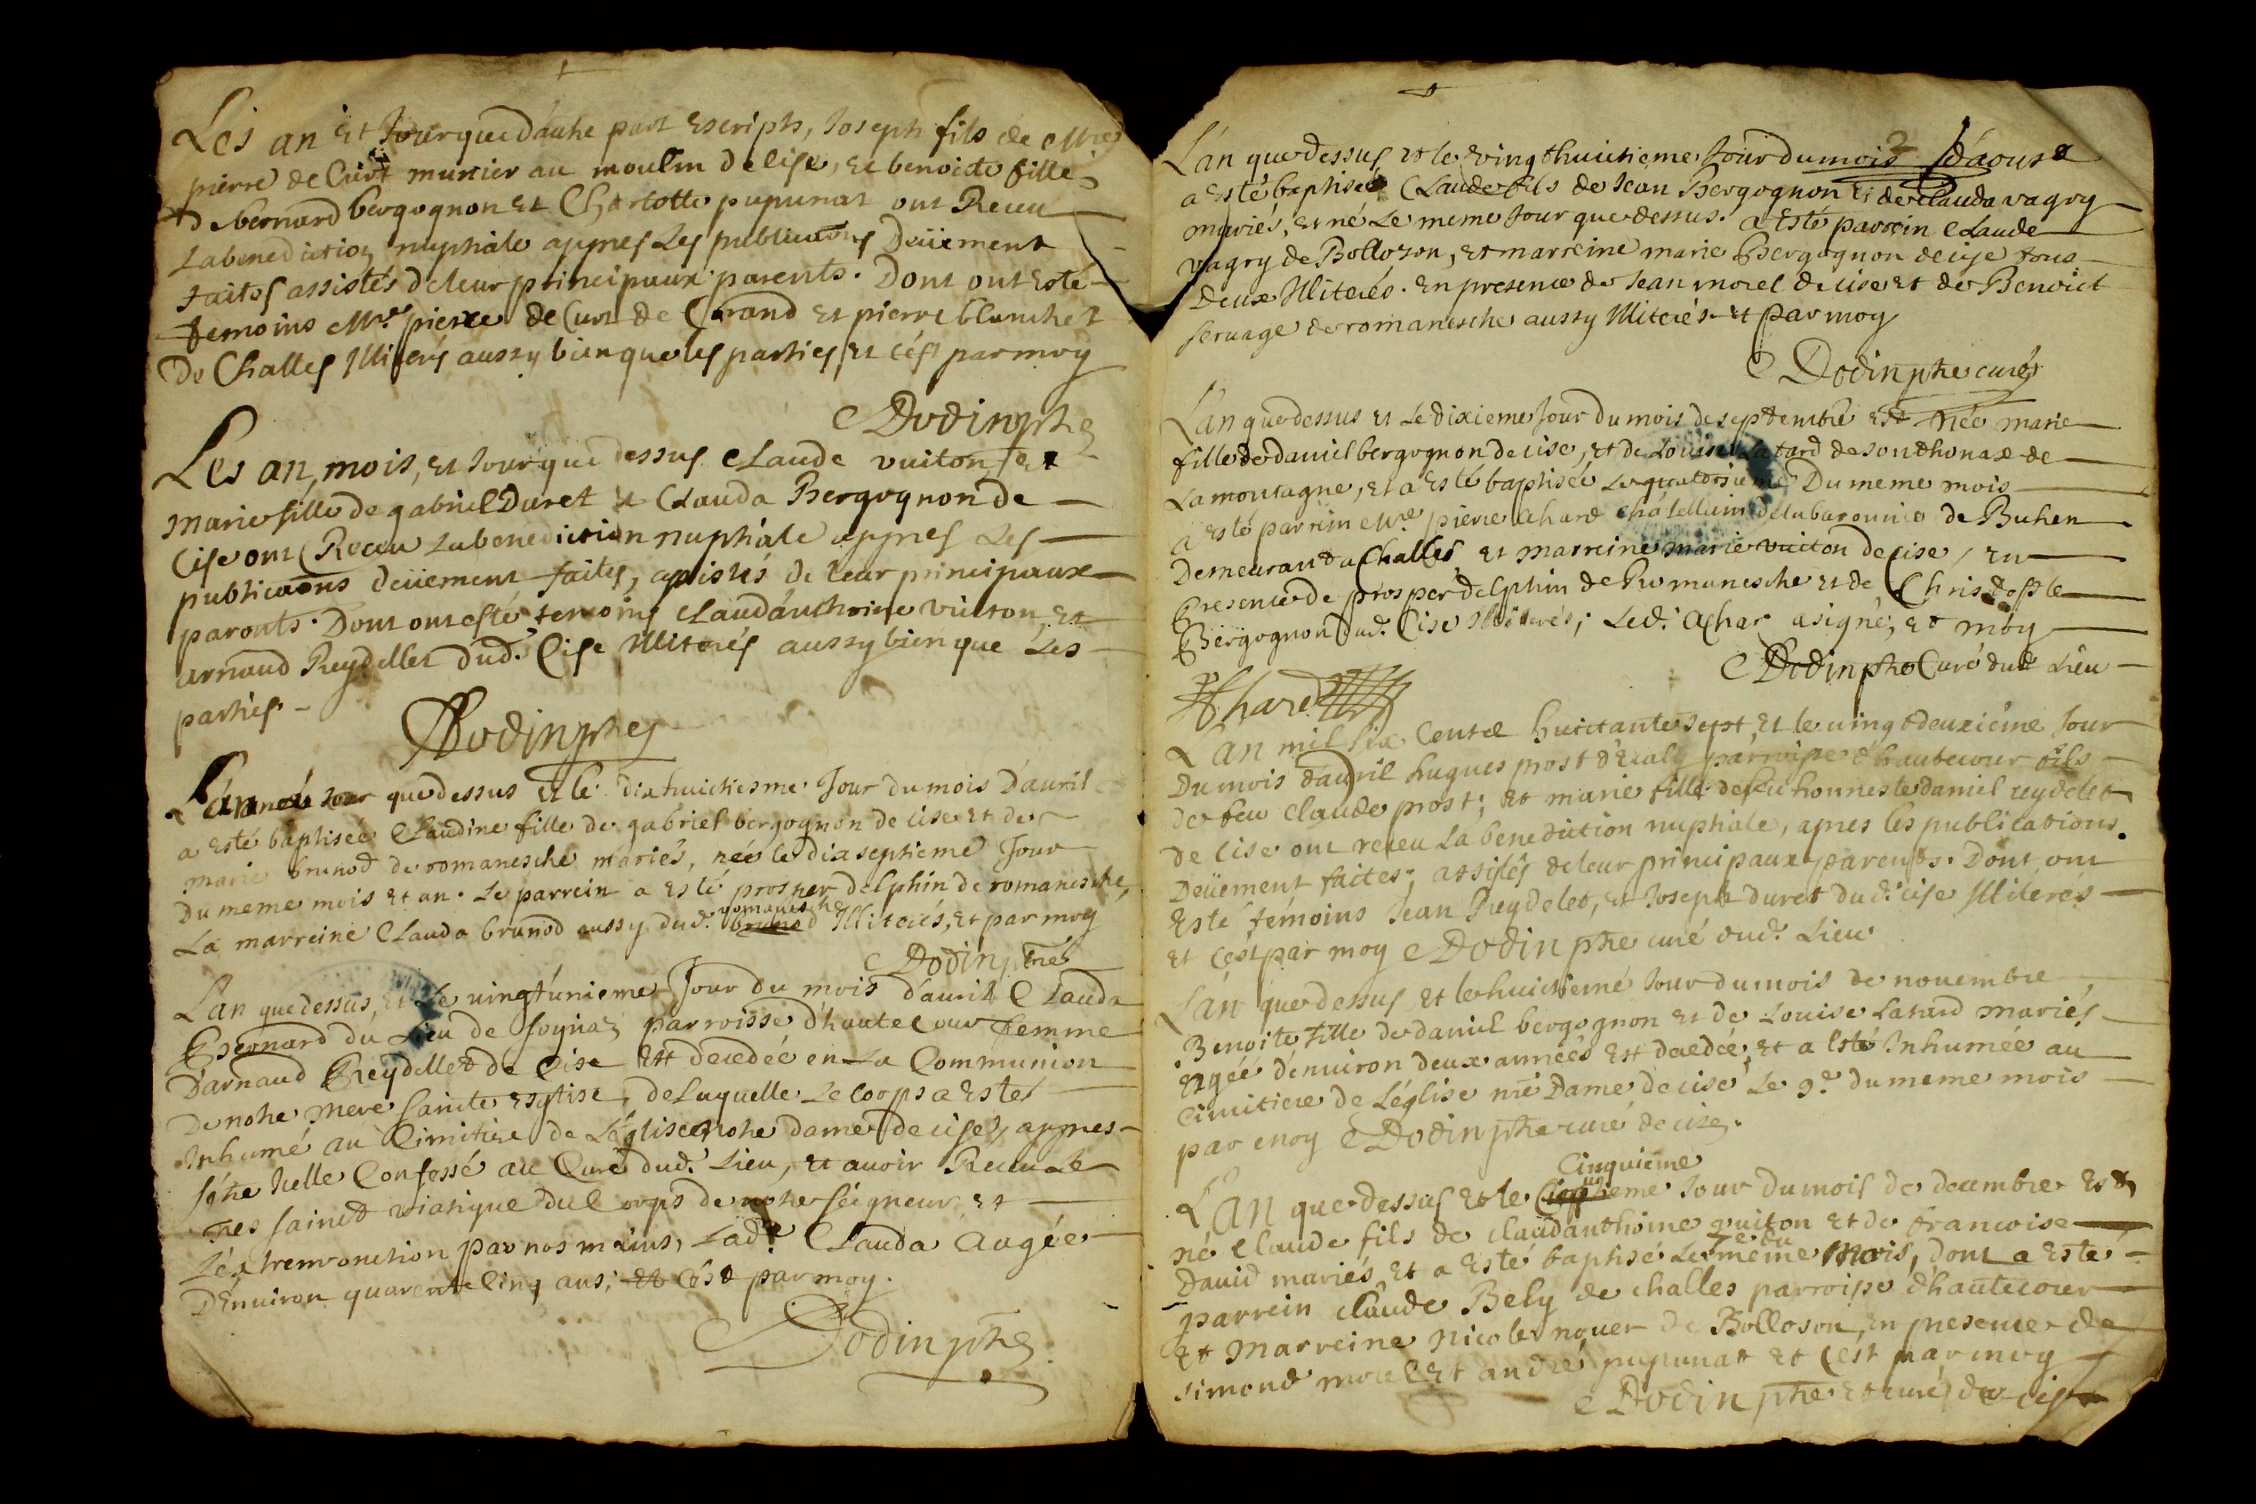 Les an et Jour que d'autre part Escripts, Joseph fils de Mre
pierre de Curt munier au moulin de lise, et benoicte fille
de bernard bergognon et Charlotte pupunat ont Receu
La benediction nuptiale appres Les publicaõns Deüement
faites assistés de leur principaux parents. Dont ont Esté
temoins Mre pierre de Curt de Corand et pierre blanchet
De Challes Illiterés aussy bien que les parties, et c'ést par moy
Dodin ptre
Les an, mois, et Jour que dessus Claude vuiton, et
marie fille de gabriel Duret et Clauda Bergognon de
Cise ont Receu La benediction nuptiale appres Les
publicaõns deüement faites, assistés de leur principaux
parents. Dont ont esté temoins Claudanthoine vuiton, et
arnaud Reydellet dud. Cise Illiterés aussy bien que Les
parties.
Dodin ptre
L'an que dessus et le dixhuictiesme Jour du mois D'auril
a Esté baptisée Claudine fille de gabriel bergognon de cise et de
marie brunod de romanesche mariés, née le dixseptieme Jour
Du meme mois et an. Le parrein a esté prosper delphin de romanesche,
romanesche
La marreine Clauda brunod aussy dud. brunod Illiterés, et par moy
Dodin ptre
L'an que dessus, et Le uingt'unieme Jour du mois d'auril Clauda
Bernard du Lieu de soignaz parroisse d'hautecour femme
D'arnaud Reydellet de Cise Est decedée en La Communion
De notre mere saincte Esglise, de Laquelle Le corps a Esté
Inhumé au Cimitiere de L'églisce notre dame de cise, appres
s'etre Icelle Confessé au Curé dud. Lieu, et auoir Receu Le
tres sainct viatique du Corps de notre seigneur, et
L'éxtremonction par nos mains, Lade Clauda Aagée
D'enuiron quarente Cinq ans; et C'ést par moy.
Dodin ptre
2
L'an que dessus et le vingthuictieme Jour du mois d'aoust
a esté baptisé Claude fils de Jean Bergognon et de Clauda vagry
mariés, et né Le meme Jour que dessus. a Esté parrein Claude
vagry de Bollozon, et marreine marie Bergognon de cise tous
deux Illiterés. En presence de Jean morel de cise et de Benoict
seruage de romanesche aussy Illiterés et par moy
Dodin ptre curé
L'an que dessus et Le dixieme Jour du mois de septembre est née marie
fille de daniel bergognon de cise, et de Louise Latard de sonthonax de
La montagne, et a esté baptisée Le quatorsieme Du meme mois
a esté parrein Mre pierre Achard châtellain de la baronnie de Buhen
Demeurand a Challes, et marreine marie vuiton de cise, En
Presence de prosper delphin de Romanesche et de Christofle
Bergognon dud. Cise Illiterés; Led. Achar a signé, et moy
Dodin ptre Curé dud Lieu
Achard
L'an mil six Centz huictante sept, et le uingtdeuxiéme Jour
Du mois d'auril hugues prost parroisse d'hautecour fils
de feu Claude prost; et marie fille de feu honneste daniel reydelet
de Cise ont receu La benediction nuptiale, apres les publications
Deüement faites; assistés de leur principaux parents. Dont ont
Esté témoins Jean Reydelet, et Joseph duret dud. cise Illiterés
et c'est par moy Dodin ptre curé dud. Lieu
L'an que dessus et le huictieme Jour du mois de nouembre
Benoite fille de daniel bergognon et de Louise Latard mariés
Ageé d'enuiron deux années est decedée, et a esté Inhumée au
Cimitiere de L'église nře Dame de cise Le 9e du meme mois
par moy Dodin ptre curé de cize.
Cinquieme
L'An que dessus et le Jour du mois de decembre est
né Claude fils de claudanthoine vuiton et de francoise
Dauid mariés, et a esté baptisé Le 7e du meme Mois, dont a esté
parrein claude Bely de challes parroisse d'hautecour
et Marreine Nicole nouer de Bolloson, en presence de
simond morel et andré pupunat et c'est par moy
Dodin ptre et curé de cise